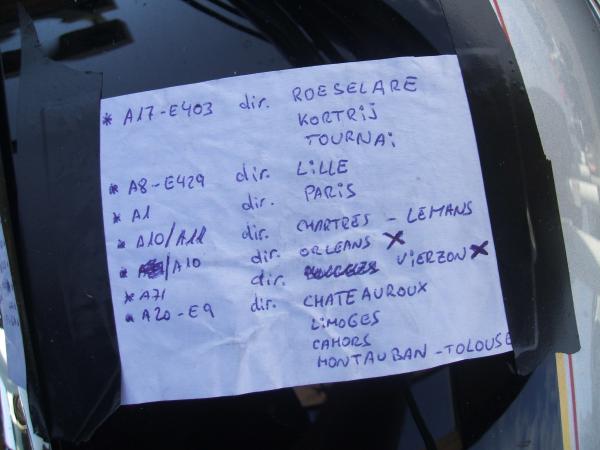 * A17-E403 dir. ROESELARE
KORTRIJ
TOURNAI
* A8-E429 dir. LILLE
* A1 dir. PARIS
* A10/A11 dir. CHARTRES - LEMANS
* /A10 dir. ORLEANS X
* A71 dir. VIERZON X
* A20-E9 dir. CHATEAUROUX
LIMOGES
CAHORS
MONTAUBAN - TOLOUSE